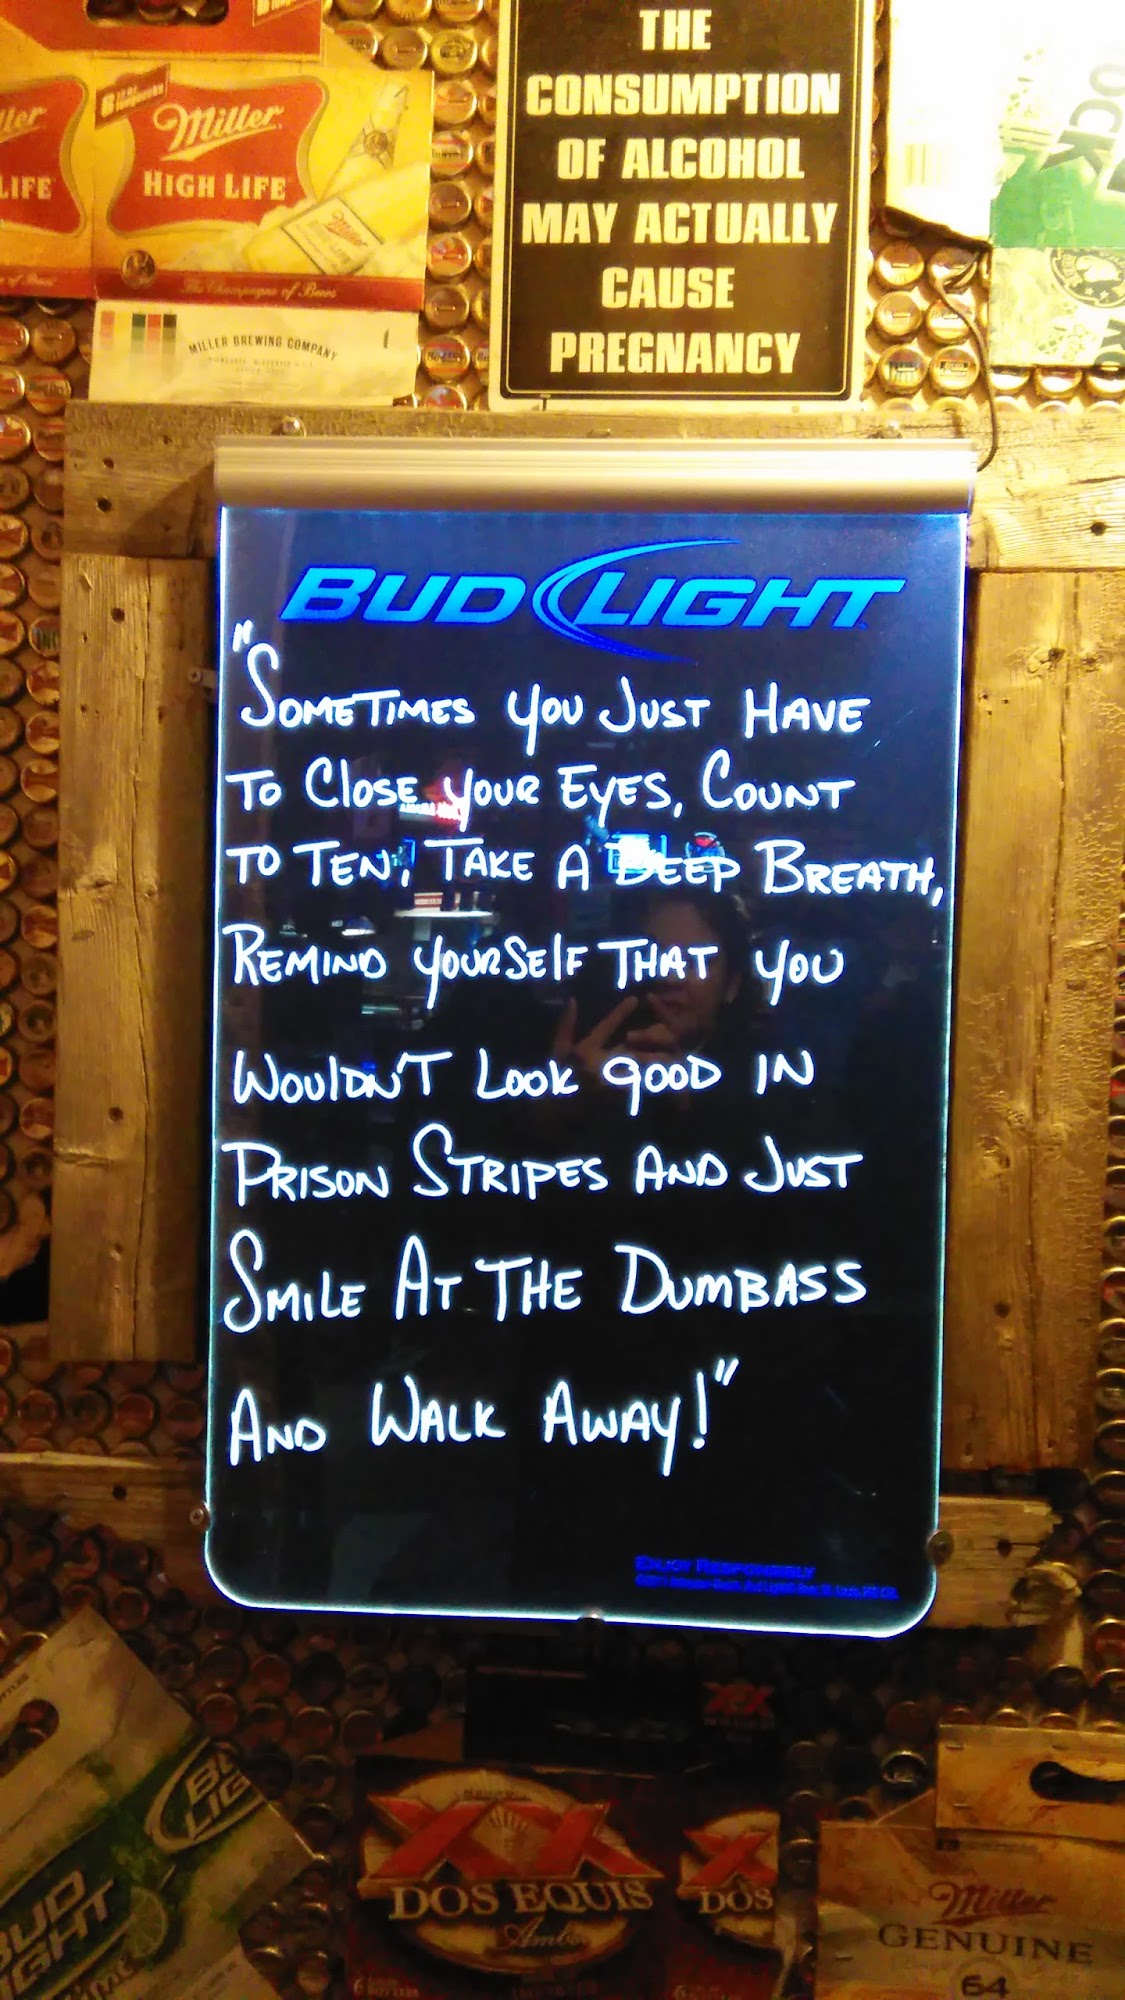 Miller
HIGH LIFE
The Champagne of Beers
MILLER BREWING COMPANY
ller
LIFE
of Beers
THE
CONSUMPTION
OF ALCOHOL
MAY ACTUALLY
CAUSE
PREGNANCY
OCK
BUD LIGHT
"SOMETIMES YOU JUST HAVE
TO CLOSE YOUR EYES, COUNT
TO TEN, TAKE A DEEP BREATH,
REMIND YOURSELF THAT YOU
WOULDN'T LOOK GOOD IN
PRISON STRIPES AND JUST
SMILE AT THE DUMBASS
AND WALK AWAY!"
ENJOY RESPONSIBLY
BU
LIG
BUD
LIGHT
LIME
XX
DOS EQUIS
Ambe
X
DOS
Miller
GENUINE
64